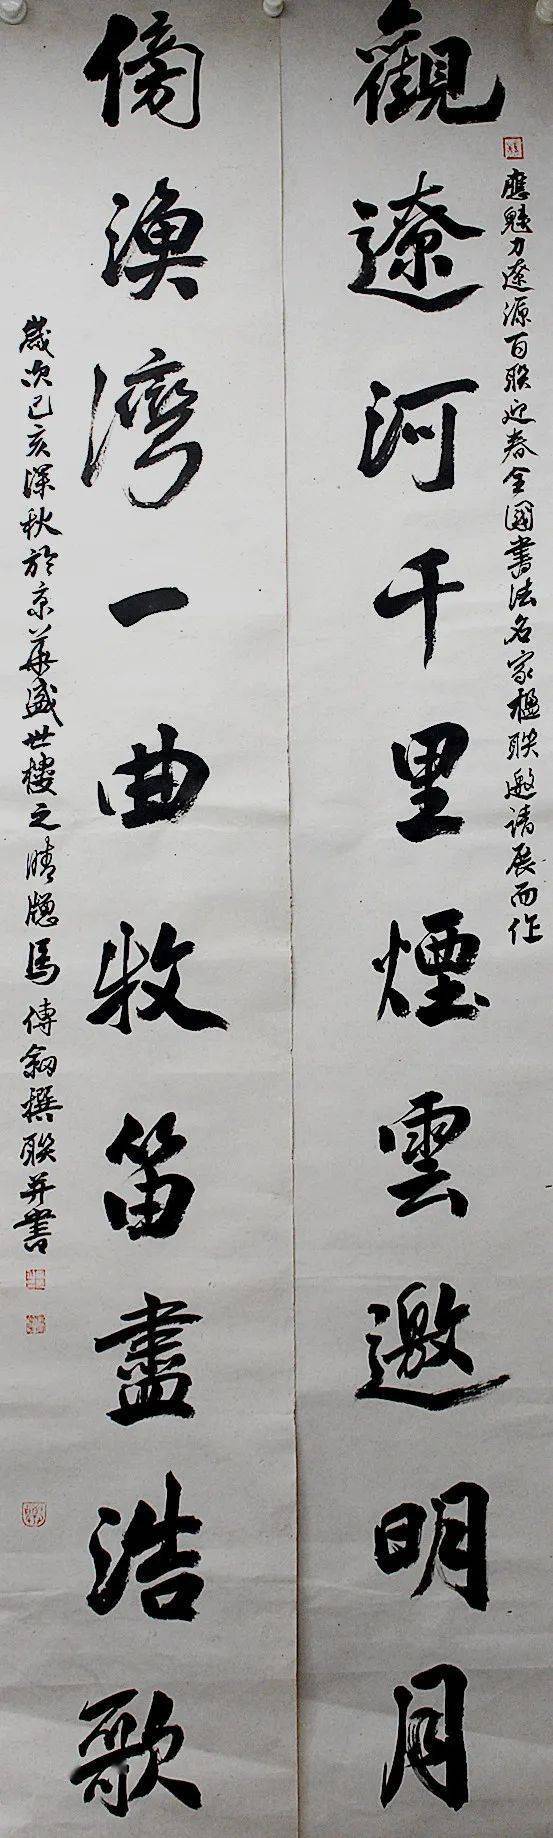 觀遼河千里煙雲邀明月
應魅力遼源百联迎春全國書法名家楹联邀請展而作
傍漁灣一曲牧笛盡浩歌
歲次己亥深秋於京華盛世樓之晴窗馬傳翎撰联并書